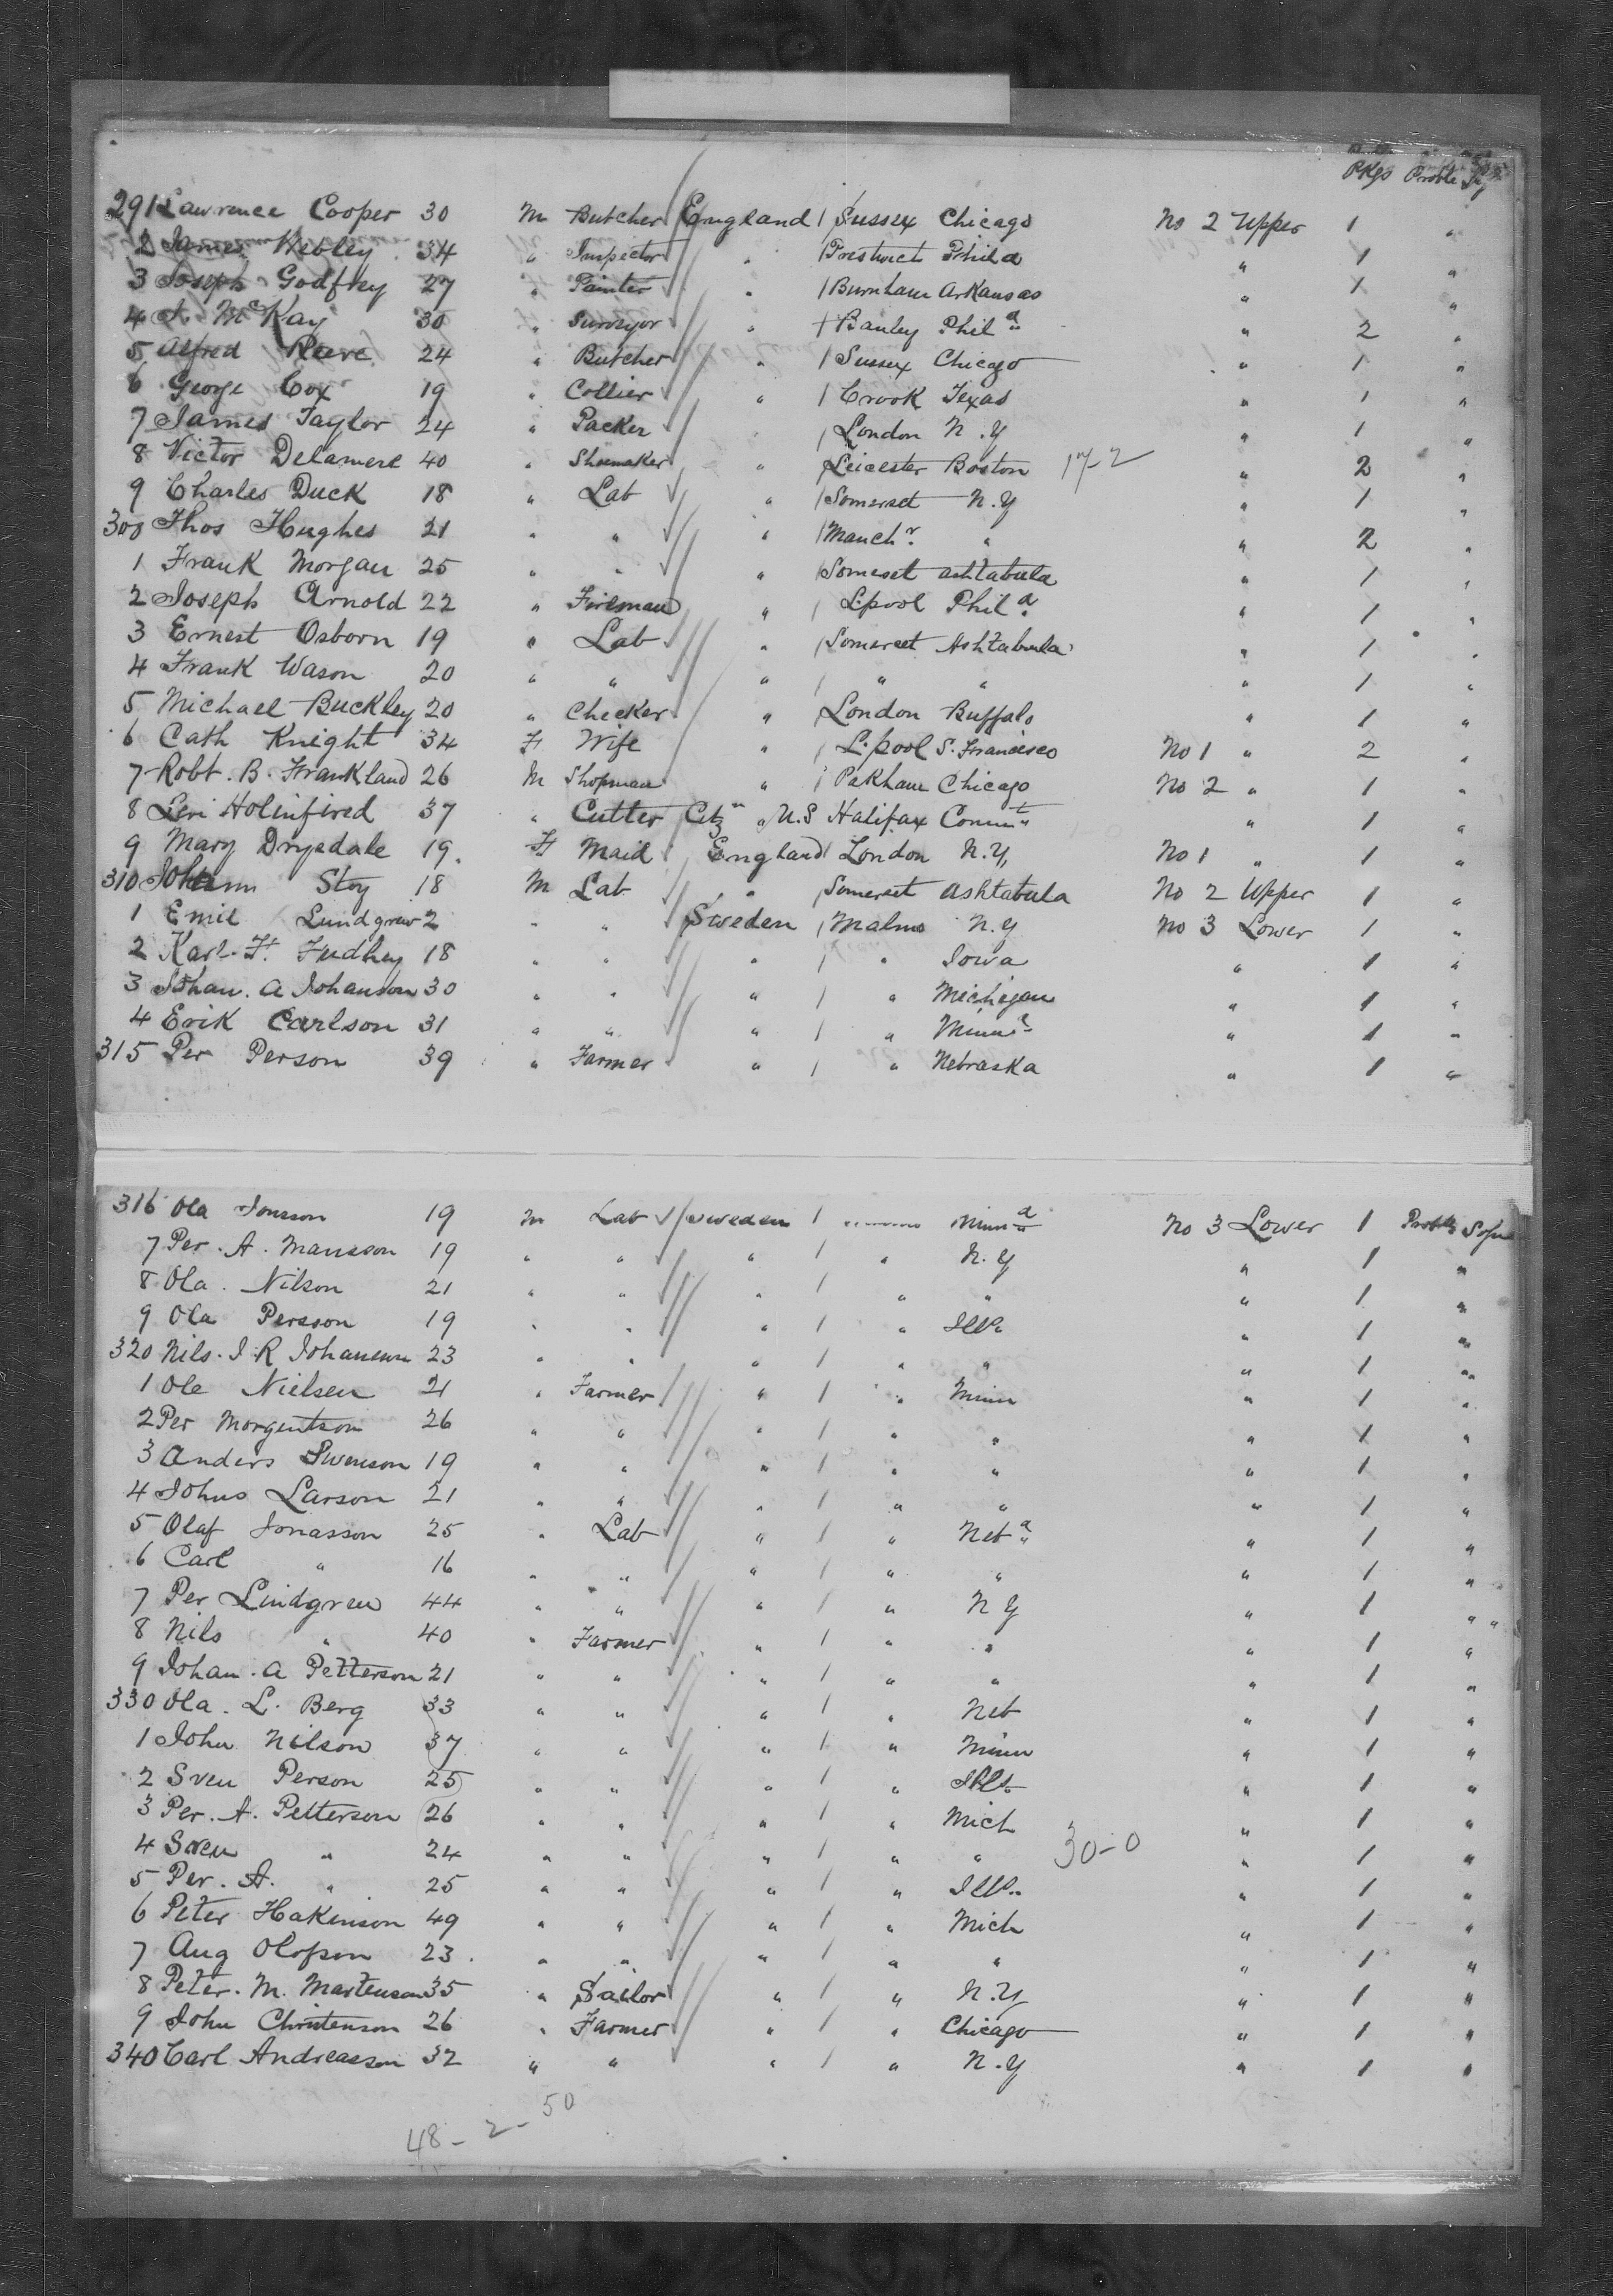 Pkgs Probble
291 Lawrence Cooper 30 M Butcher England 1 Sussex Chicago No 2 Upper 1 "
2 James Webley 34 " Inspector " 1 Prestwich Phila " 1 "
3 Joseph Godfrey 27 " Painter " 1 Burnham Arkansas " 1 "
4 J. McKay 30 " Surveyor " 1 Banley Phila " 2 "
5 Alfred Reeve 24 " Butcher " 1 Sussex Chicago " 1 "
6 George Cox 19 " Collier " 1 Crook Texas " 1 "
7 James Taylor 24 " Packer " 1 London N.Y " 1 "
8 Victor Delamere 40 " Shoemaker " 1 Leicester Boston 17-2 " 2 "
9 Charles Duck 18 " Lab " 1 Somerset N.Y " 1 "
300 Thos Hughes 21 " " " 1 Manchr. " " 2 "
1 Frank Morgan 25 " " " 1 Somerset Ashtabula " 1 "
2 Joseph Arnold 22 " Fireman " 1 L.pool Phila " 1 "
3 Ernest Osborn 19 " Lab " 1 Somerset Ashtabula " 1 "
4 Frank Wason 20 " " " 1 " " " 1 "
5 Michael Buckley 20 " Checker " 1 London Buffalo " 1 "
6 Cath Knight 34 F Wife " 1 L.pool S. Francisco No 1 " 2 "
7 Robt. B. Frankland 26 M Shopman " 1 Pakham Chicago No 2 " 1 "
8 Levi Holinfired 37 " Cutter Citzn " U.S Halifax Connt " 1 "
9 Mary Drysdale 19. F Maid England 1 London N.Y, No 1 " 1 "
310 Johann Stoy 18 M Lab " 1 Somerset Ashtabula No 2 Upper 1 "
1 Emil Lundgren 2 " " Sweden 1 Malmo N.Y No 3 Lower 1 "
2 Karl. F. 18 " " " 1 " Iowa " 1 "
3 Johan. A Johanson 30 " " " 1 " Michigan " 1 "
4 Erik Carlson 31 " " " 1 " Minna " 1 "
315 Per Person 39 " Farmer " 1 " Nebraska " 1 "
316 Ola Jonsson 19 M Lab Sweden 1 Minna No 3 Lower 1 Probble Sojn
7 Per. A. Mansson 19 " " " 1 " N.Y " 1 "
8 Ola. Nilson 21 " " " 1 " " " 1 "
9 Ola Persson 19 " " " 1 " Ills " 1 "
320 Nils. J R Johansson 23 " " " 1 " " " 1 "
1 Ole Nielsen 21 " Farmer " 1 " Minn " 1 "
2 Per Morgentson 26 " " " 1 " " " 1 "
3 Anders Swenson 19 " " " 1 " " " 1 "
4 Johns Larson 21 " " " 1 " " " 1 "
5 Olaf Jonasson 25 " Lab " 1 " Neba " 1 "
6 Carl " 16 " " " 1 " " " 1 "
7 Per Lindgren 44 " " " 1 " N Y " 1 " "
8 Nils " 40 " Farmer " 1 " " " 1 "
9 Johan. A Petterson 21 " " " 1 " " " 1 "
330 Ola. L. Berg 33 " " " 1 " Neb " 1 "
1 John Nilson 37 " " " 1 " Minn " 1 "
2 Sven Person 25 " " " 1 " Ills " 1 "
3 Per. A. Petterson 26 " " " 1 " Mich " 1 "
4 Sven " 24 " " " 1 " " 30-0 " 1 "
5 Per. A. " 25 " " " 1 " Ills " 1 "
6 Peter Hakenson 49 " " " 1 " Mich " 1 "
7 Aug Olofson 23. " " " 1 " " " 1 "
8 Peter. M. Martenson 35 " Sailor " 1 " N.Y " 1 "
9 John Christenson 26 " Farmer " 1 " Chicago " 1 "
340 Carl Andreasson 32 " " " 1 " N.Y " 1 "
48 - 2 - 50